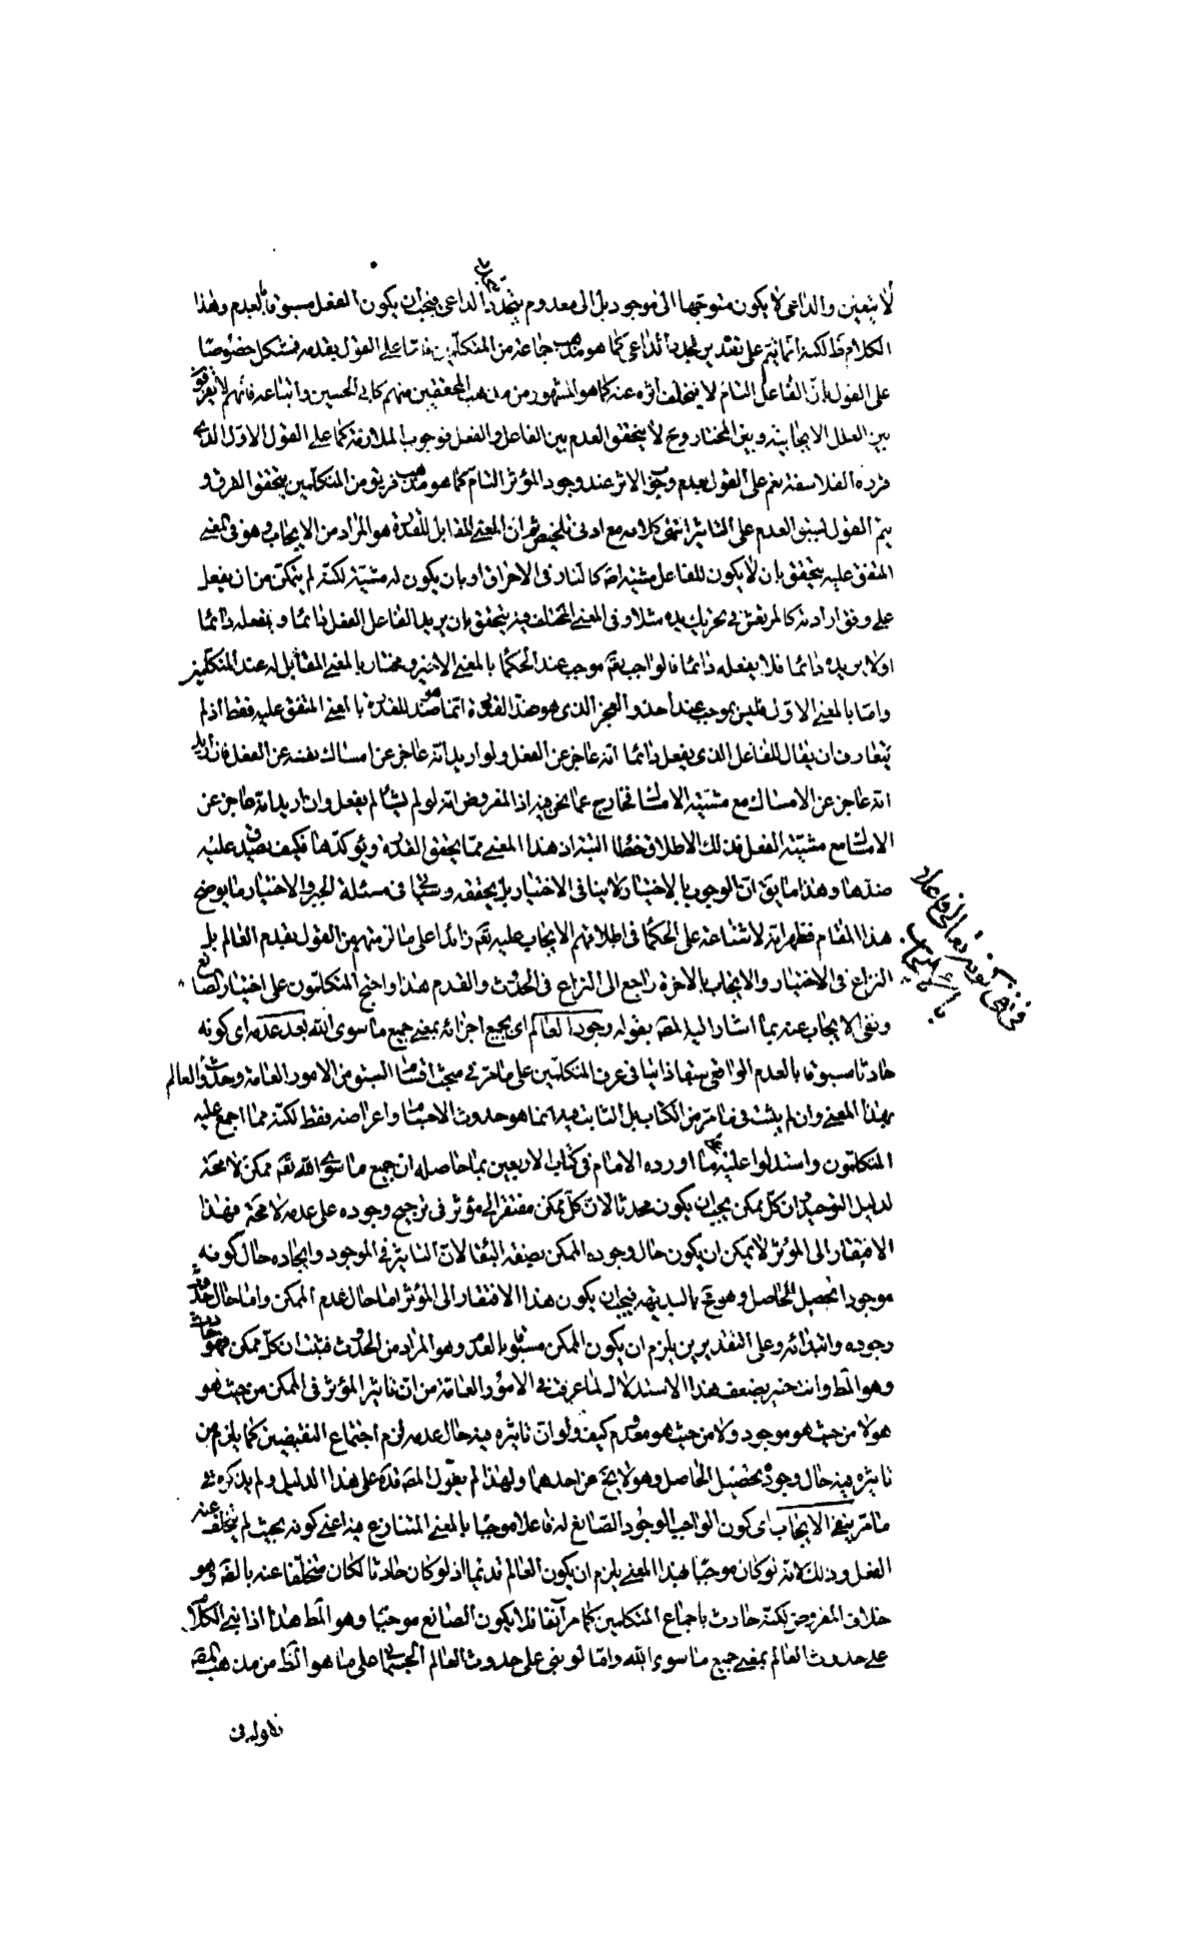 لا يتعين والداعى لا يكون متوجها الى موجود بل الى معدوم يتجدد الداعى فيجب ان يكون الفعل مسبوقا بالعدم وهذا
الكلام ظ لكنه انما يتم على تقدير تجدد الداعى كما هو مذهب جماعة من المتكلمين فاما على القول بقدمه فمشكل خصوصا
على القول بان الفاعل التام لا يتخلف اثره عنه كما هو المشهور من مذهب المحققين منهم كابى الحسين واتباعه فانهم لا يفرقوا
بين العلل الايجابية وبين المختار وح لا يتحقق العدم بين الفاعل والفعل فوجوب الملازمة كما على القول الاول الذى
فرده الفلاسفة نعم على القول بعدم وجوب الاثر عند وجود المؤثر التام كما هو مذهب فريق من المتكلمين يتحقق الفرق و
يتم القول لسبق العدم على التاثير انتهى كلامه مع ادنى تلخيص ثم ان المعنى المقابل للقدرة هو المراد من الايجاب وهو فى المعنى
المتفق عليه يتحقق بان لا يكون للفاعل مشية اصلا كالنار فى الاحراق او بان يكون له مشية لكنه لم يتمكن من ان يفعل
على وفق ارادته كالمرتعش فى تحريك يده مثلا وفى المعنى المختلف فيه يتحقق بان يريد الفاعل الفعل دائما ويفعله دائما
او لا يريده دائما فلا يفعله دائما فالواجب تعم موجب عند الحكما بالمعنى الاخير ومختار بالمعنى المقابل له عند المتكلمين
واما بالمعنى الاول فليس بموجب عند احد والعجز الذى هو ضد القدرة انما هو ضد للقدرة بالمعنى المتفق عليه فقط اذ لم
يتعارف ان يقال للفاعل الذى يفعل دائما انه عاجز عن الفعل ولو اريد انه عاجز عن امساك نفسه عن الفعل فان اريد
انه عاجز عن الامساك مع مشية الامساك فخارج عما نحن فيه اذ المفروض انه لو لم يشا لم يفعل وان اريد انه عاجز عن
الامساك مع مشية الفعل فذلك الاطلاق خطا البتة اذ هذا المعنى مما يحقق القدرة ويؤكدها فكيف يصدق عليه
ضدها وهذا ما يق ان الوجوب بالاختيار لا ينافى الاختيار بل يحققه وسياتى فى مسئلة الجبر والاختيار ما يوضح
هذا المقام فظهر انه لا شناعة على الحكما فى اطلاقهم الايجاب عليه تعم زائدا على ما لزمهم من القول بقدم العالم بل
النزاع فى الاختيار والايجاب بالاخرة راجع الى النزاع فى الحدوث والقدم هذا واحتج المتكلمون على اختيار الصانع
ونفى الايجاب عنه بما اشار اليه المصم بقوله وجود العالم اى بجميع اجزائه بمعنى جميع ما سوى الله بعد عدمه اى كونه
حادثا مسبوقا بالعدم الواقعى سبقا ذاتيا فى عرف المتكلمين على ما مر فى مبحث اقسام السبق من الامور العامة وحدوث العالم
بهذا المعنى وان لم يثبت فى ما مر من الكتاب بل الثابت فيه انما هو حدوث الاجسام واعراضه فقط لكنه مما اجمع عليه
المتكلمون واستدلوا عليه بما اورده الامام فى كتاب الاربعين بما حاصله ان جميع ما سوى الله تعم ممكن لا محة
لدليل التوحيد وان كل ممكن يجب ان يكون محدثا لان كل ممكن مفتقر الى مؤثر فى ترجيح وجوده على عدمه لا محة فهذا
الافتقار الى المؤثر لا يمكن ان يكون حال وجوده الممكن بصفة البقا لان التاثير فى الموجود وايجاده حال كونه
موجودا تحصيل للحاصل وهو مح بالبديهة فيجب ان يكون هذا الافتقار الى المؤثر اما حال عدم الممكن واما حال حدوث
وجوده وابتدائه وعلى التقديرين يلزم ان يكون الممكن مسبوقا بالعدم وهو المراد من الحدوث فثبت ان كل ممكن فهو حادث
وهو المط وانت خبير بضعف هذا الاستدلال لما عرفت فى الامور العامة من ان تاثير المؤثر فى الممكن من حيث هو
هو لا من حيث هو موجود ولا من حيث هو معدوم كيف ولو ان تاثيره فيه حال عدمه لزم اجتماع النقيضين كما يلزم من
تاثيره فيه حال وجوده تحصيل الحاصل وهو لا يخ عن احدهما ولهذا لم يعول المصم قده على هذا الدليل ولم يذكره فى
ما مر ينفى الايجاب اى كون الواجب الوجود الصانع له فاعلا موجبا بالمعنى المتنازع فيه اعنى كونه بحيث لم يتخلف عنه
الفعل وذلك لانه لو كان موجبا بهذا المعنى يلزم ان يكون العالم قديما اذ لو كان حادثا لكان متخلفا عنه بالضم وهو
خلاف المفروض لكنه حادث باجماع المتكلمين كما مر آنفا فلا يكون الصانع موجبا وهو المط هذا اذا بنى الكلام
على حدوث العالم بمعنى جميع ما سوى الله واما لو بنى على حدوث العالم الجسمانى على ما هو الظ من مذهب المصم
فى نفى كونه تعالى فاعلا
بالايجاب